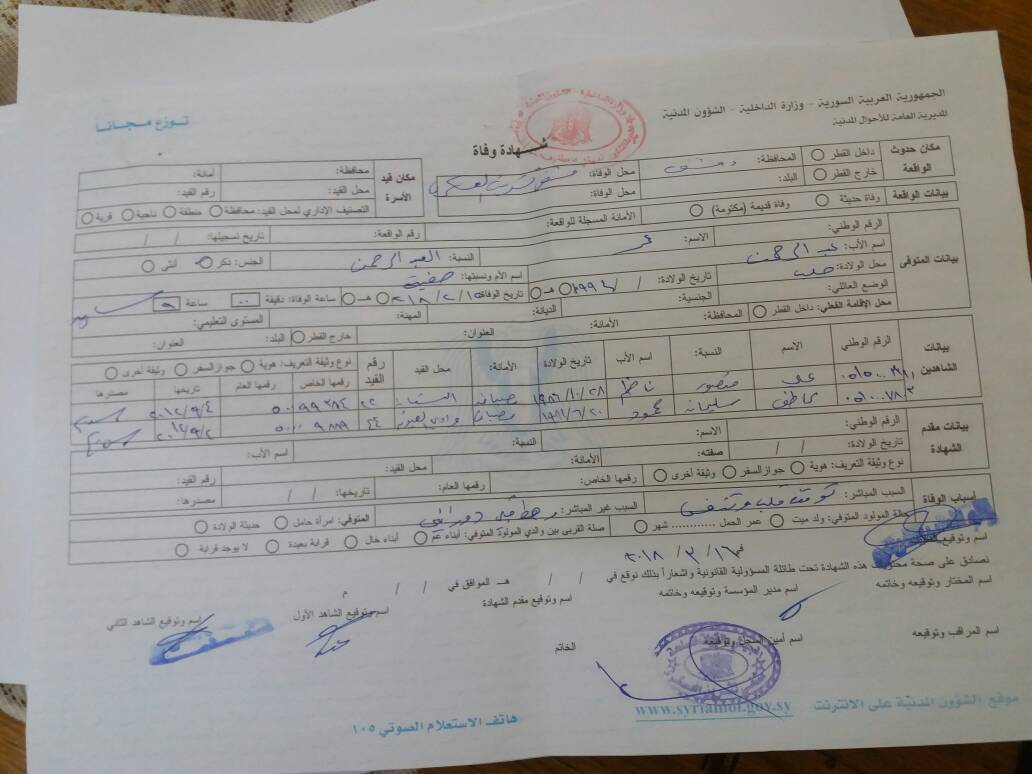 الجمهورية العربية السورية - وزارة الداخلية - الشؤون المدنية
المديرية العامة للأحوال المدنية
توزع مجانا
شهادة وفاة
مكان حدوث الواقعة داخل القطر المحافظة: دمشق محل الوفاة: مشفى تشرين العسكري
خارج القطر البلد: محل الوفاة:
مكان قيد الأسرة محافظة: امانة:
محل القيد: رقم القيد:
التصنيف الإداري لمحل القيد: محافظة منطقة ناحية قرية
بيانات الواقعة وفاة حديثة وفاة قديمة (مكتومة) الأمانة المسجلة للواقعة: رقم الواقعة: تاريخ تسجيلها: / /
بيانات المتوفى الرقم الوطني: الاسم: النسبة: العبد الرحمن الجنس: ذكر أنثى
اسم الأب: عبد الرحمن اسم الأم ونسبتها: صفية
محل الولادة: حلب تاريخ الولادة: / / ١٩٩٤ م هـ تاريخ الوفاة: ٢٠١٨/٢/١٥ م هـ ساعة الوفاة: دقيقة ٠٠ ساعة ٩
الوضع العائلي: الجنسية: الديانة: المهنة: المستوى التعليمي:
محل الإقامة الفعلي: داخل القطر المحافظة: الأمانة: العنوان: خارج القطر البلد: العنوان:
بيانات الشاهدين الرقم الوطني الاسم النسبة: اسم الأب تاريخ الولادة الأمانة: محل القيد رقم القيد نوع وثيقة التعريف: هوية جوازالسفر وثيقة أخرى
رقمها الخاص رقمها العام تاريخها مصدرها
علي منصور ناظم ١٩٨٦/١٠/٢٨ مصياف ٢٢ ٢٠١٢/٩/٤
عاطف سليمان محمود ١٩٨١/٦/٢٠ مصياف وادي العيون ٤٤ ٩٨٨٩
بيانات مقدم الشهادة الرقم الوطني: الاسم: النسبة: اسم الأب:
تاريخ الولادة: / / صفته: الأمانة: محل القيد: رقم القيد:
نوع وثيقة التعريف: هوية جوازالسفر وثيقة أخرى رقمها الخاص: رقمها العام: تاريخها: / / مصدرها:
أسباب الوفاة السبب المباشر: توقف قلب وتنفس السبب غير المباشر: المتوفي: امرأة حامل حديثة الولادة
حالة المولود المتوفي: ولد ميت عمر الحمل ............ شهر صلة القربى بين والدي المولود المتوفي: أبناء عم أبناء خال قرابة بعيدة لا يوجد قرابة
اسم وتوقيع
في ٢٠١٨/٢/١٦
نصادق على صحة محتويات هذه الشهادة تحت طائلة المسؤولية القانونية واشعاراً بذلك نوقع في / / هـ الموافق في / / م
اسم المختار وتوقيعه وخاتمه اسم مدير المؤسسة وتوقيعه وخاتمه اسم وتوقيع مقدم الشهادة اسم وتوقيع الشاهد الأول اسم وتوقيع الشاهد الثاني
اسم المراقب وتوقيعه اسم أمين السجل وتوقيعه الخاتم
موقع الشؤون المدنية على الانترنت www.syriamoi.gov.sy هاتف الاستعلام الصوتي ١٠٥